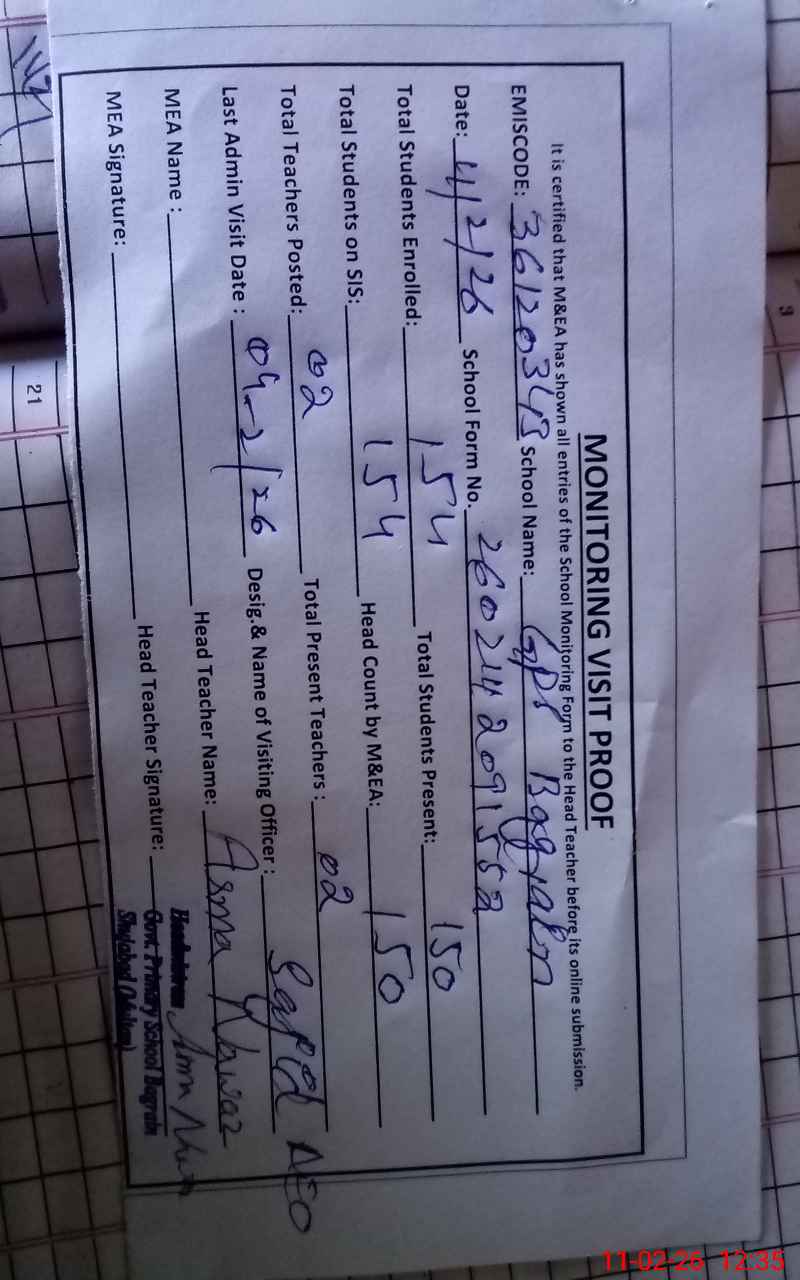 MONITORING VISIT PROOF
It is certified that M&EA has shown all entries of the School Monitoring Form to the Head Teacher before its online submission.
EMISCODE: 36120343 School Name: GPS Bagrain
Date: 4/2/26 School Form No. 2602142091552
Total Students Enrolled: 154 Total Students Present: 150
Total Students on SIS: 154 Head Count by M&EA: 150
Total Teachers Posted: 02 Total Present Teachers : 02
Last Admin Visit Date : 04-2/26 Desig.& Name of Visiting Officer : Sajid AEO
MEA Name : Head Teacher Name: Asma Nawaz
MEA Signature: Head Teacher Signature:
Headmistress
Govt. Primary School Bagrain
Shujabad (Multan)
21
3
11-02-26 12:35